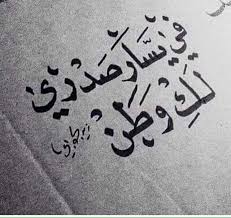 في يَسَارِ صَدْري
لَكِ وَطَنٌ